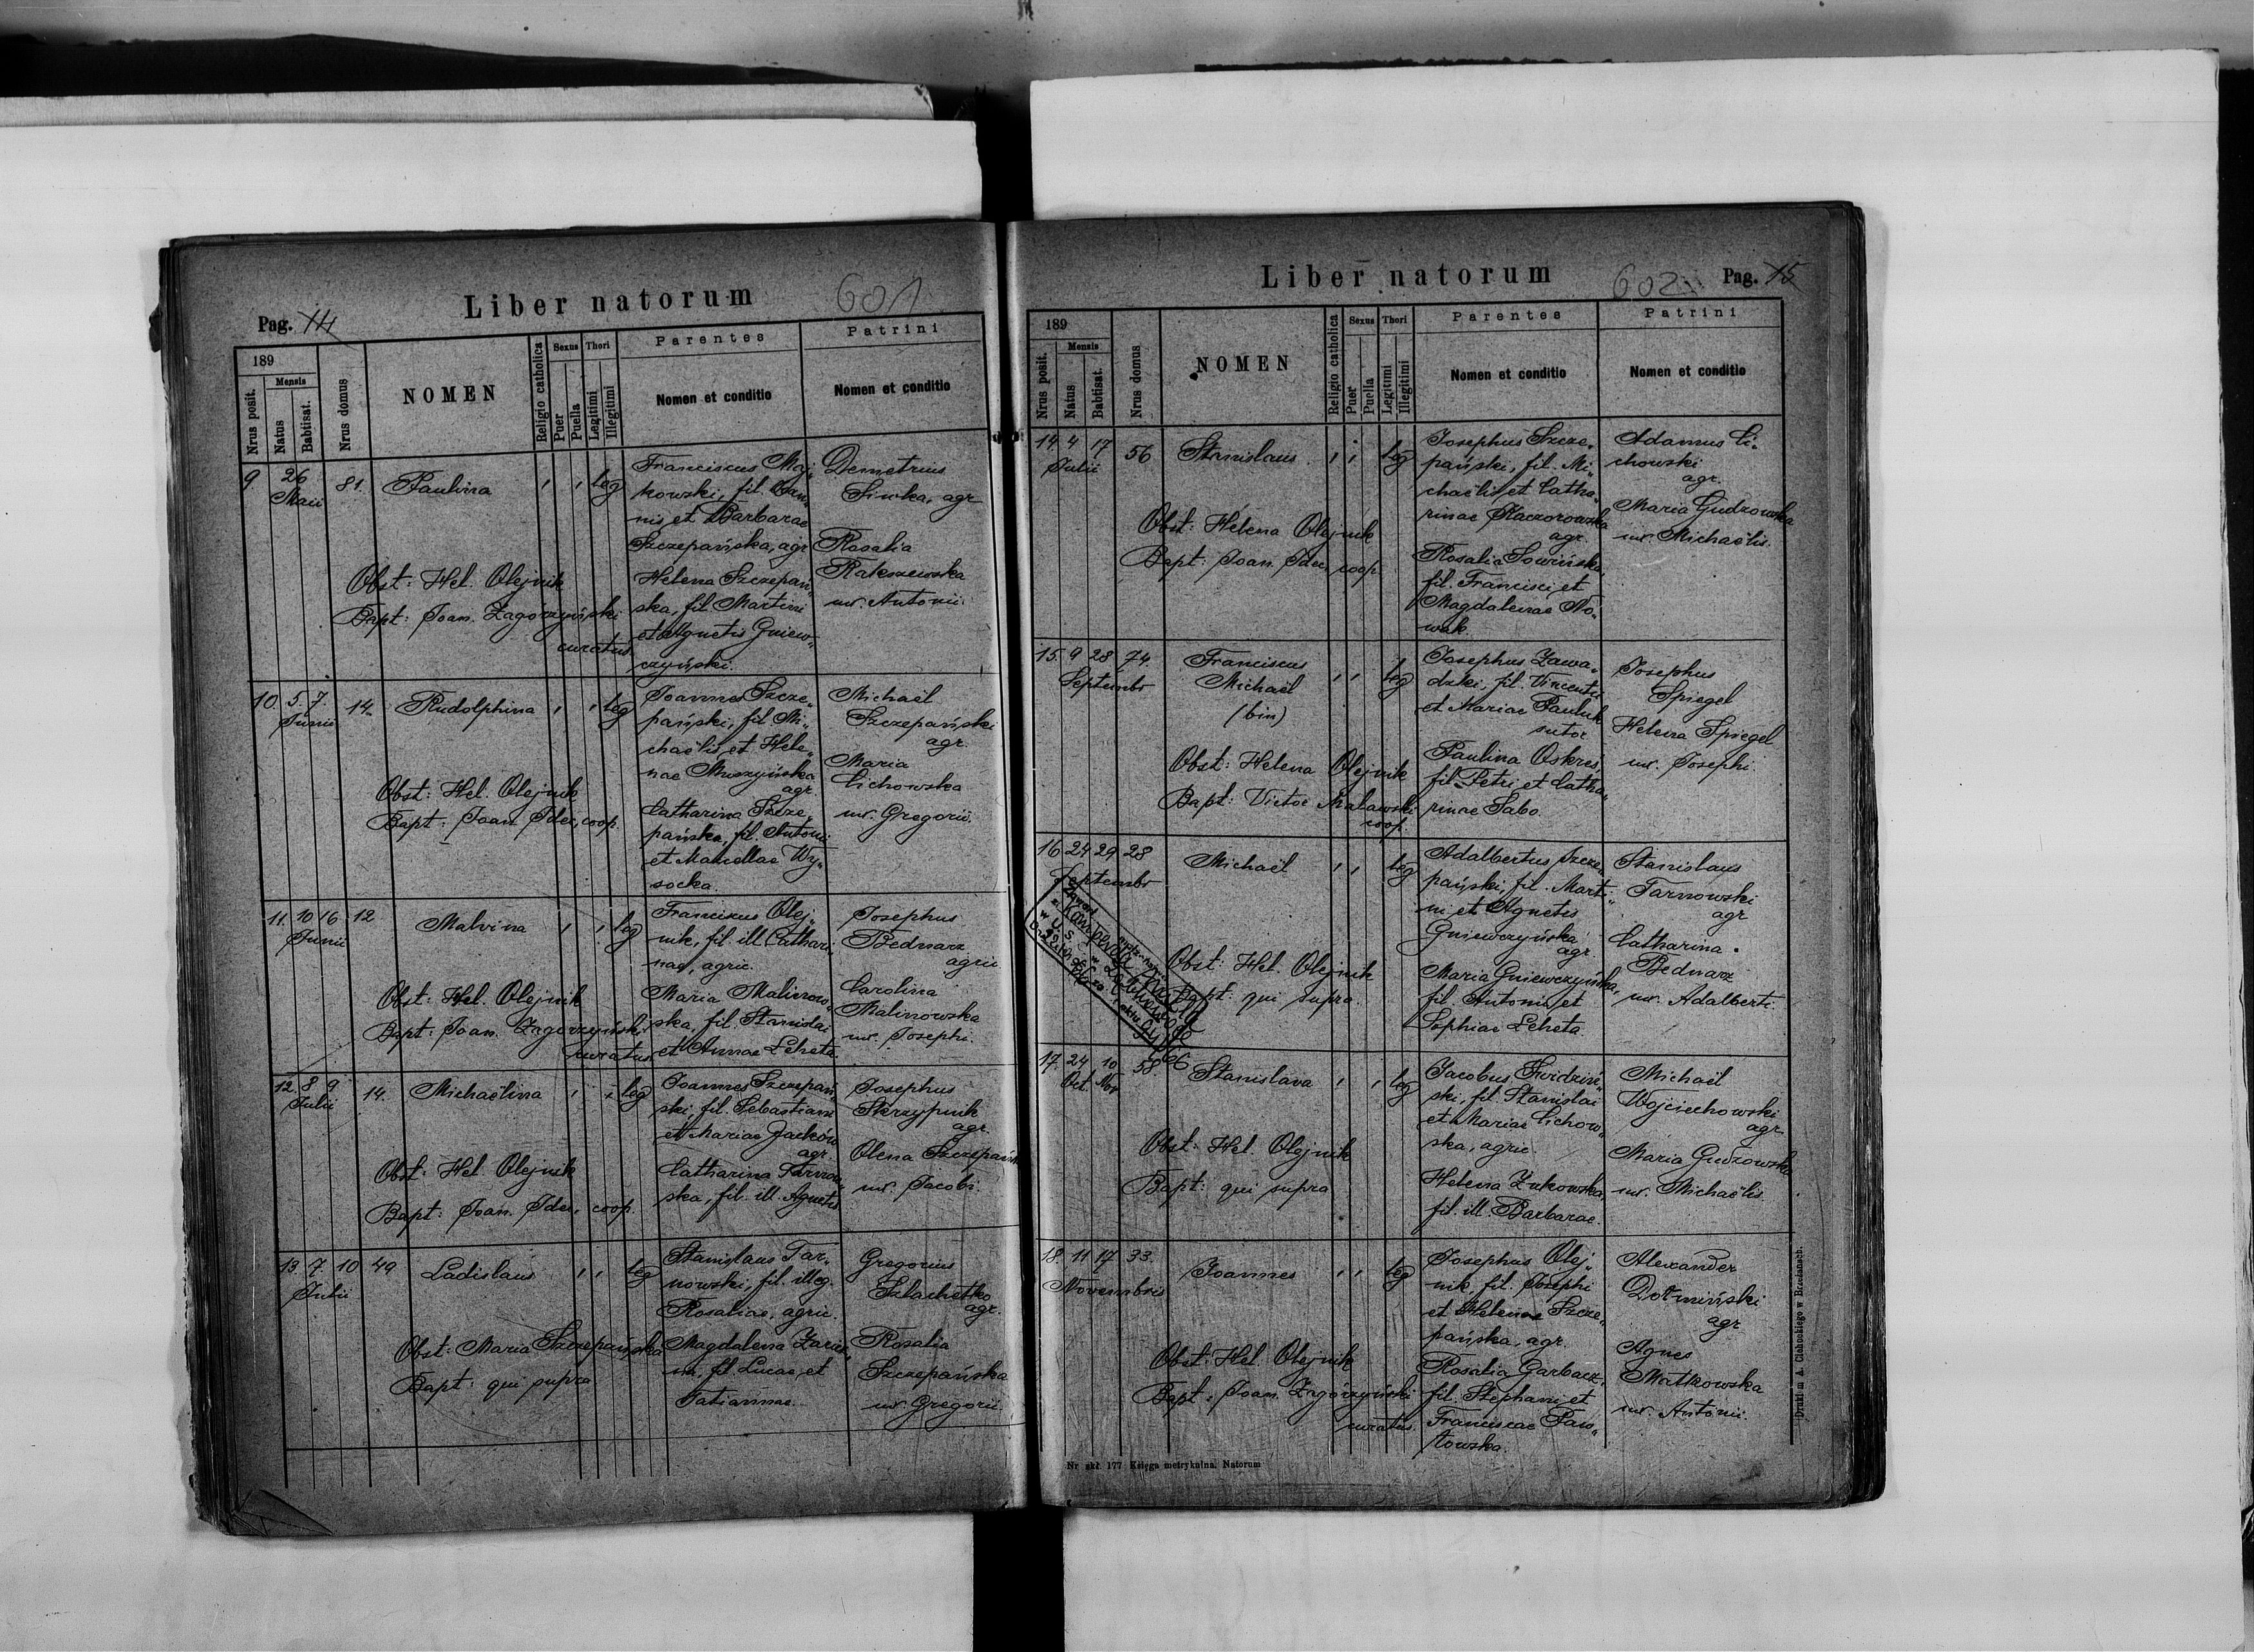 Pag. 14
Liber natorum
601
189
Nrus posit.
Mensis
Natus
Babtisat.
Nrus domus
NOMEN
Religio catholica
Sexus
Puer
Puella
Thori
Legitimi
Illegitimi
Parentes
Nomen et conditio
Patrini
Nomen et conditio
9 26 81. Paulina , , leg
Maii
Franciscus Maj„
kowski, fil. Joan„
nis et Barbarae
Szczepańska, agr
Helena Szczepań„
ska, fil. Martini
et Agnetis Gniew„
czyński.
Demetrius
Siwka, agr
Rosalia
Rakszewska
ux. Antonii.
Obst: Hel. Olejnik
Bapt: Joan. Zagórzyński
curatus.
10. 5. 7. 14. Rudolphina , , leg
Junii
Joannes Szcze„
pański, fil Mi„
chaëlis et Hele„
nae Muszyńska
agr.
Catharina Szcze„
pańska, fil. Antonii
et Marcellae Wy„
socka.
Michaël
Szczepański
agr.
Maria
Cichowska
ux. Gregorii.
Obst: Hel. Olejnik
Bapt: Joan. Idec, coop.
11. 10 16 12 Malvina , , leg
Junii
Franciscus Olej„
nik, fil. ill. Cathari„
nae, agric.
Maria Malinow„
ska, fil. Stanislai
et Annae Leheta
Josephus
Bednarz
agric
Carolina
Malinowska
ux. Josephi.
Obst: Hel. Olejnik
Bapt: Joan. Zagórzyński
curatus
12. 8 9 14. Michaëlina , , leg
Julii
Joannes Szczepań„
ski, fil. Sebastiani
et Mariae Jacków
agr.
Catharina Tarnow„
ska, fil. ill. Agnetis
Josephus
Skrzypnik
agr.
Olena Szczepańsk
ux. Jacobi.
Obst: Hel. Olejnik
Bapt: Joan. Idec, coop.
13 7. 10 49 Ladislaus , , leg
Julii
Stanislaus Tar„
nowski, fil. illeg.
Rosaliae, agric.
Magdalena
fil. Lucae et
Tatiannae.
Gregorius
Szlachetko
agr.
Rosalia
Szczepańska
ux. Gregorii.
Obst: Maria Szczepańska
Bapt: qui supra
Liber natorum
602
Pag. 15
189
Nrus posit.
Mensis
Natus
Babtisat.
Nrus domus
NOMEN
Religio catholica
Sexus
Puer
Puella
Thori
Legitimi
Illegitimi
Parentes
Nomen et conditio
Patrini
Nomen et conditio
14. 4 17 56 Stanislaus , , leg
Julii
Josephus Szcze„
pański, fil. Mi„
chaëlis et Catha„
rinae Kaczorowska
agr.
Rosalia Sowińska,
fil. Francisci et
Magdalenae No„
wak.
Adamus Ci„
chowski
agr.
Maria Gudzowska
ux. Michaëlis.
Obst: Helena Olejnik
Bapt: Joan. Idec, coop
15. 9 28 74. Franciscus , , leg
Septembr
Michaël
(bin)
Josephus Zawa„
dzki, fil. Vincentii
et Mariae Pauluk
sutor
Paulina Oskres,
fil. Petri et Catha„
rinae Sabo.
Josephus
Spiegel
Helena Spiegel
ux. Josephi.
Obst: Helena Olejnik
Bapt: Victor Malawski
coop.
16 24 29 28 Michaël , , leg
Septembr
Adalbertus Szcze„
pański, fil. Marti„
ni et Agnetis
Gniewczyńska
agr.
Maria Gniewczyńska,
fil. Antonii et
Sophiae Leheta.
Stanislaus
Tarnowski
agr
Catharina
Bednarz
ux. Adalberti.
Obst: Hel. Olejnik
Bapt: qui supra.
17. 24 10 58 Stanislava , , leg
Oct. Nov
Jacobus Świdziń„
ski, fil. Stanislai
et Mariae Cichow„
ska, agric.
Helena Żukowska,
fil. ill. Barbarae.
Michaël
Wojciechowski
agr
Maria Gudzowska
ux. Michaëlis.
Obst: Hel. Olejnik
Bapt: qui supra
18. 11 17 33. Joannes , , leg
Novembris
Josephus Olej„
nik, fil. Josephi
et Helenae Szcze„
pańska, agr.
Rosalia Garbacz,
fil. Stephani et
Franciscae Paw„
łowska.
Alexander
Dołmiński
agr
Agnes
Matkowska
ux. Antonii.
Obst: Hel. Olejnik
Bapt: Joan. Zagórzyński
curatus.
Nr skł. 177 Księga metrykalna. Natorum